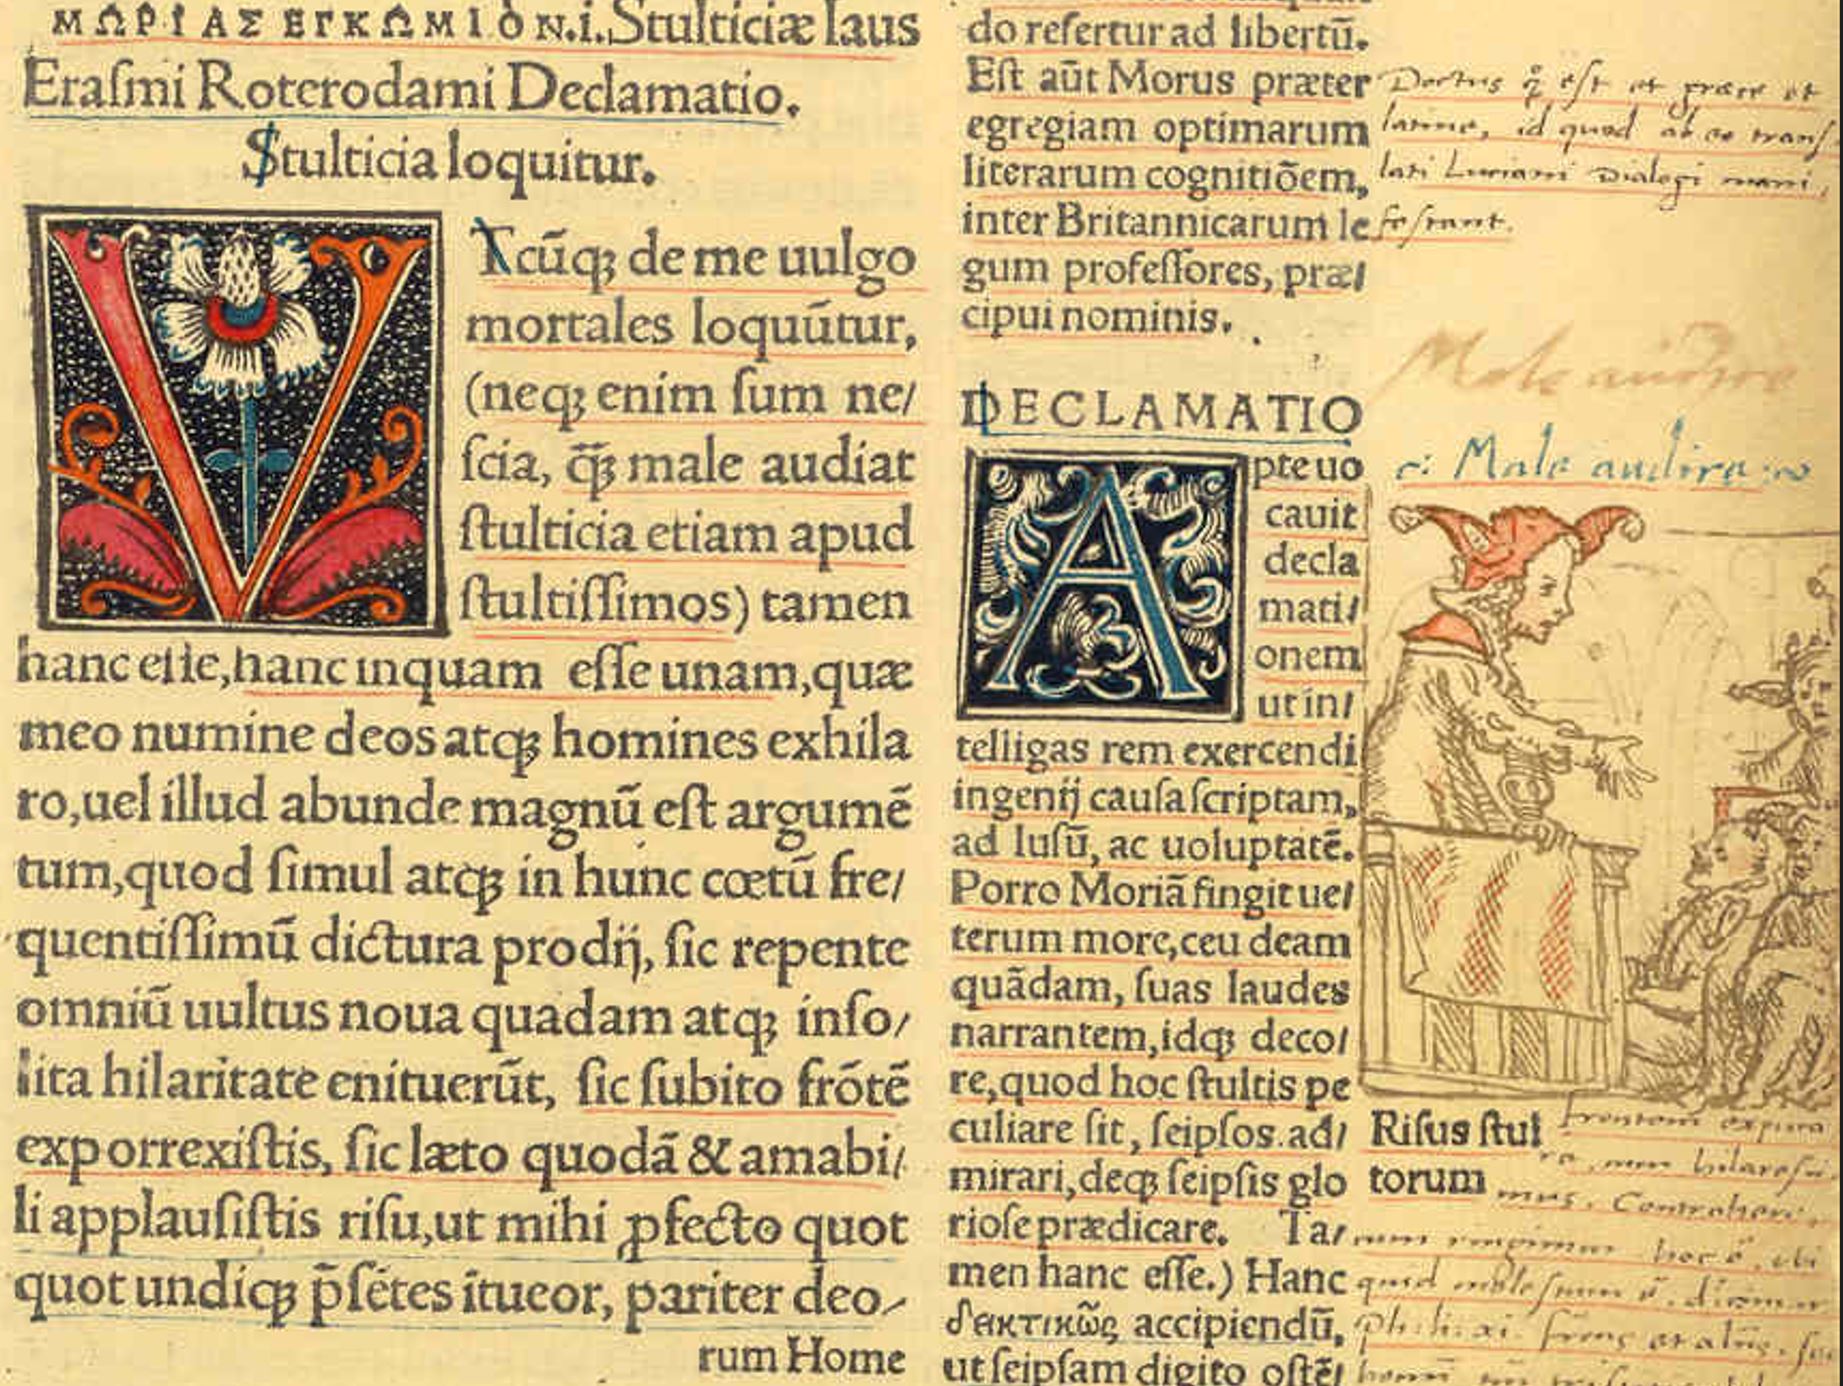 ΜΩΡΙΑΣ ΕΓΚΩΜΙΟΝ.i.Stulticiæ laus
Eraſmi Roterodami Declamatio.
Stulticia loquitur.
VTcūq; de me uulgo
mortales loquūtur,
(neq; enim ſum ne/
ſcia, q̄ꝫ male audiat
ſtulticia etiam apud
ſtultiſſimos) tamen
hanc eſſe, hanc inquam eſſe unam, quæ
meo numine deos atq; homines exhila
ro, uel illud abunde magnū eſt argumē
tum, quod ſimul atq; in hunc cœtū fre/
quentiſſimū dictura prodij, ſic repente
omniū uultus noua quadam atq; inſo/
lita hilaritate enituerūt, ſic ſubito frōtē
exporrexiſtis, ſic læto quodā & amabi/
li applauſiſtis riſu, ut mihi ꝓfecto quot
quot undiq; p̄ſētes ītueor, pariter deo/
rum Home
do refertur ad libertū.
Eſt aūt Morus præter
egregiam optimarum
literarum cognitiōem,
inter Britannicarum le
gum profeſſores, præ/
cipui nominis.
DECLAMATIO
Apte uo
cauit
decla
mati/
onem
ut in/
telligas rem exercendi
ingenij cauſa ſcriptam,
ad luſū, ac uoluptatē.
Porro Moriā fingit ue/
terum more, ceu deam
quādam, ſuas laudes
narrantem, idq; deco/
re, quod hoc ſtultis pe
culiare ſit, ſeipſos ad/
mirari, deq; ſeipſis glo
rioſe prædicare. Ta/
men hanc eſſe.) Hanc
δεικτικῶς accipiendū,
ut ſeipſam digito oſtē/
Doctus q̊ eſt et græce et
latine, id quod ab eo tranſ
lati Luciani Dialogi mani,
feſtant.
Male audire
c: Male audire
Riſus ſtul
torum
frontem
hilareſci
mus. Contrahere